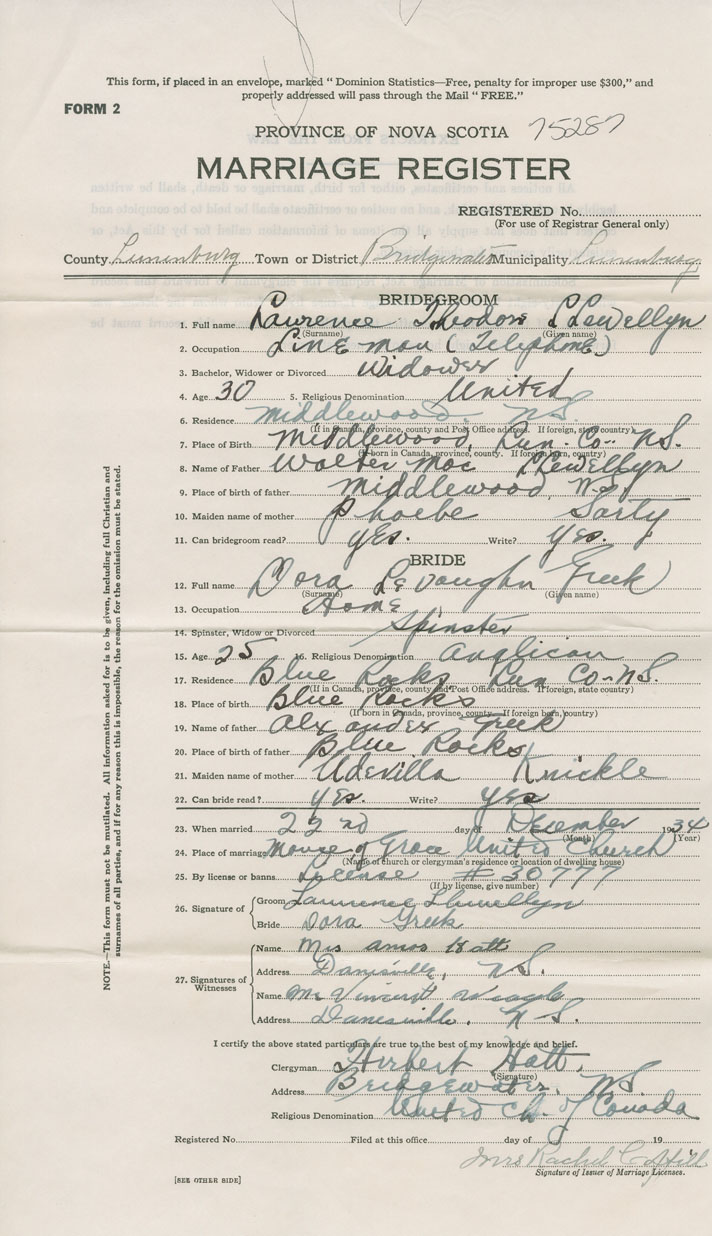 This form, if placed in an envelope, marked " Dominion Statistics—Free, penalty for improper use $300," and
properly addressed will pass through the Mail " FREE."
FORM 2
PROVINCE OF NOVA SCOTIA 75287
MARRIAGE REGISTER
REGISTERED No.
(For use of Registrar General only)
County Lunenburg Town or District Bridgewater Municipality Lunenburg
BRIDEGROOM
1. Full name Lawrence Theodore Llewellyn
(Surname) (Given name)
2. Occupation Line man (Telephone)
3. Bachelor, Widower or Divorced Widower
4. Age 30 5. Religious Denomination United
6. Residence Middlewood. N.S.
(If in Canada, province, county and Post Office address. If foreign, state country)
7. Place of Birth Middlewood, Lun. Co. N.S.
(If born in Canada, province, county. If foreign born, country)
8. Name of Father Walter Mac Llewellyn
9. Place of birth of father Middlewood, N.S.
10. Maiden name of mother Phoebe Sarty
11. Can bridegroom read? yes. Write? yes.
BRIDE
12. Full name Dora Levaughn Greek
(Surname) (Given name)
13. Occupation Home
14. Spinster, Widow or Divorced Spinster
15. Age 25 16. Religious Denomination Anglican
17. Residence Blue Rocks Lun Co-N.S.
(If in Canada, province, county and Post Office address. If foreign, state country)
18. Place of birth Blue Rocks
(If born in Canada, province, county. If foreign born, country)
19. Name of father Alexander Greek
20. Place of birth of father Blue Rocks
21. Maiden name of mother Udevilla Knickle
22. Can bride read? yes. Write? yes
23. When married 22nd day of December 1934
(Month) (Year)
24. Place of marriage Manse of Grace United Church
(Name of church or clergyman's residence or location of dwelling house)
25. By license or banns License # 30777
(If by license, give number)
26. Signature of Groom Lawrence Llewellyn
Bride Dora Greek
27. Signatures of Witnesses
Name Mrs Amos Hatt
Address Danesville, N.S.
Name Mr Vincent
Address Danesville. N.S.
I certify the above stated particulars are true to the best of my knowledge and belief.
Clergyman Herbert Hatt.
(Signature)
Address Bridgewater, N.S.
Religious Denomination United Ch. of Canada
Registered No. Filed at this office day of 19
Mrs Rachel C. Hill
Signature of Issuer of Marriage Licenses.
[SEE OTHER SIDE]
NOTE.—This form must not be mutilated. All information asked for is to be given, including full Christian and
surnames of all parties, and if for any reason this is impossible, the reason for the omission must be stated.